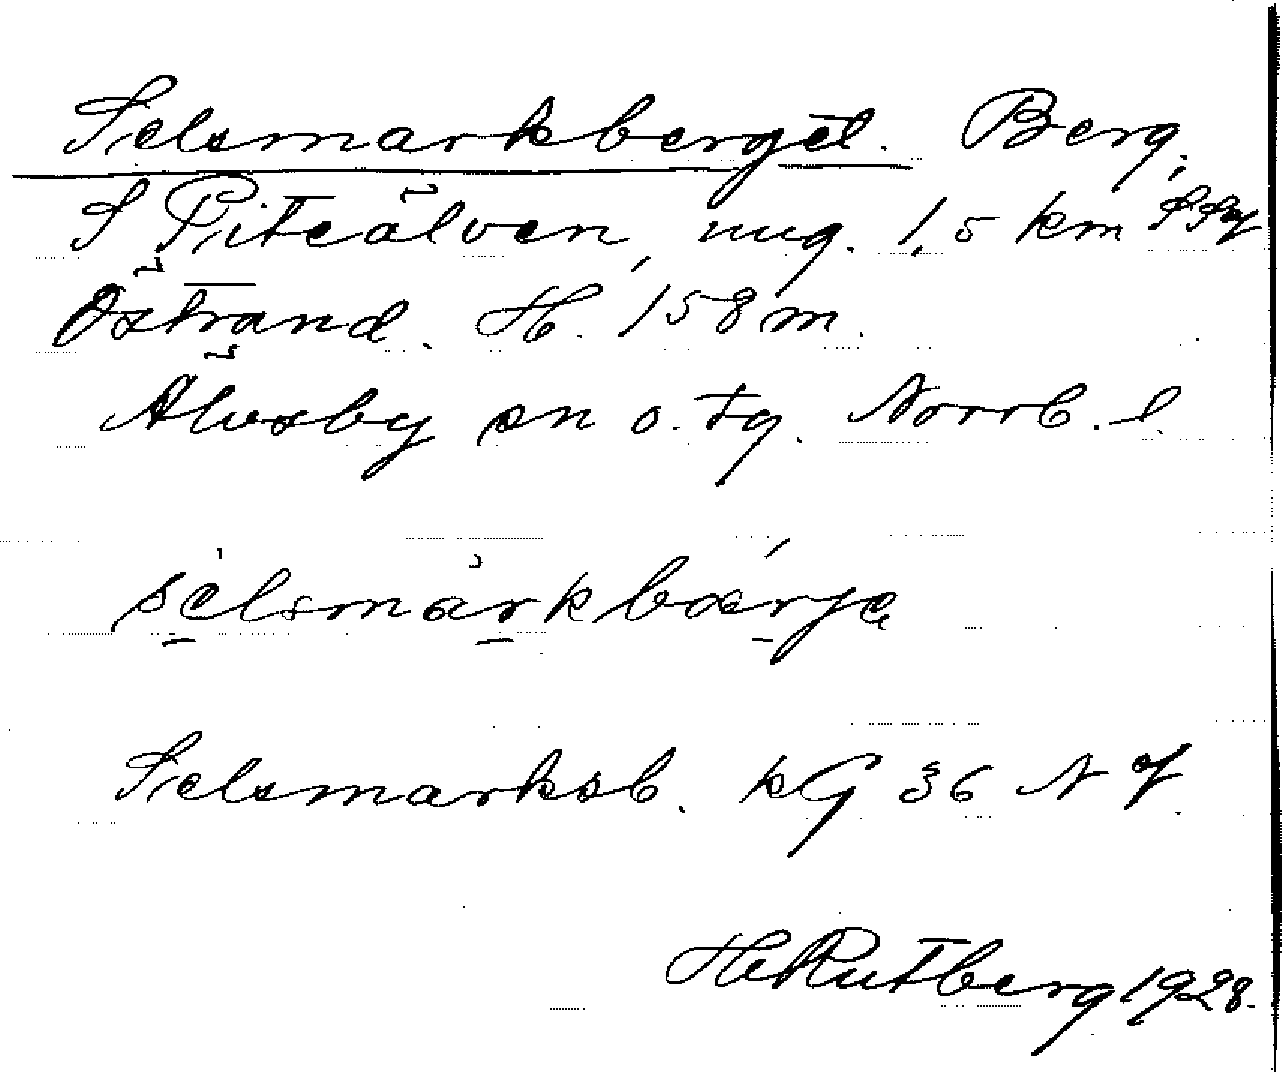 Selsmarkberget. Berg,
S Piteälven, ung. 1,5 km SSV
Östrand. H. 158 m.
Älvsby sn o. tg. Norrb. l.
sélsmàrkbærje
Selsmarksb. kG 36 NV
H Rutberg 1928.